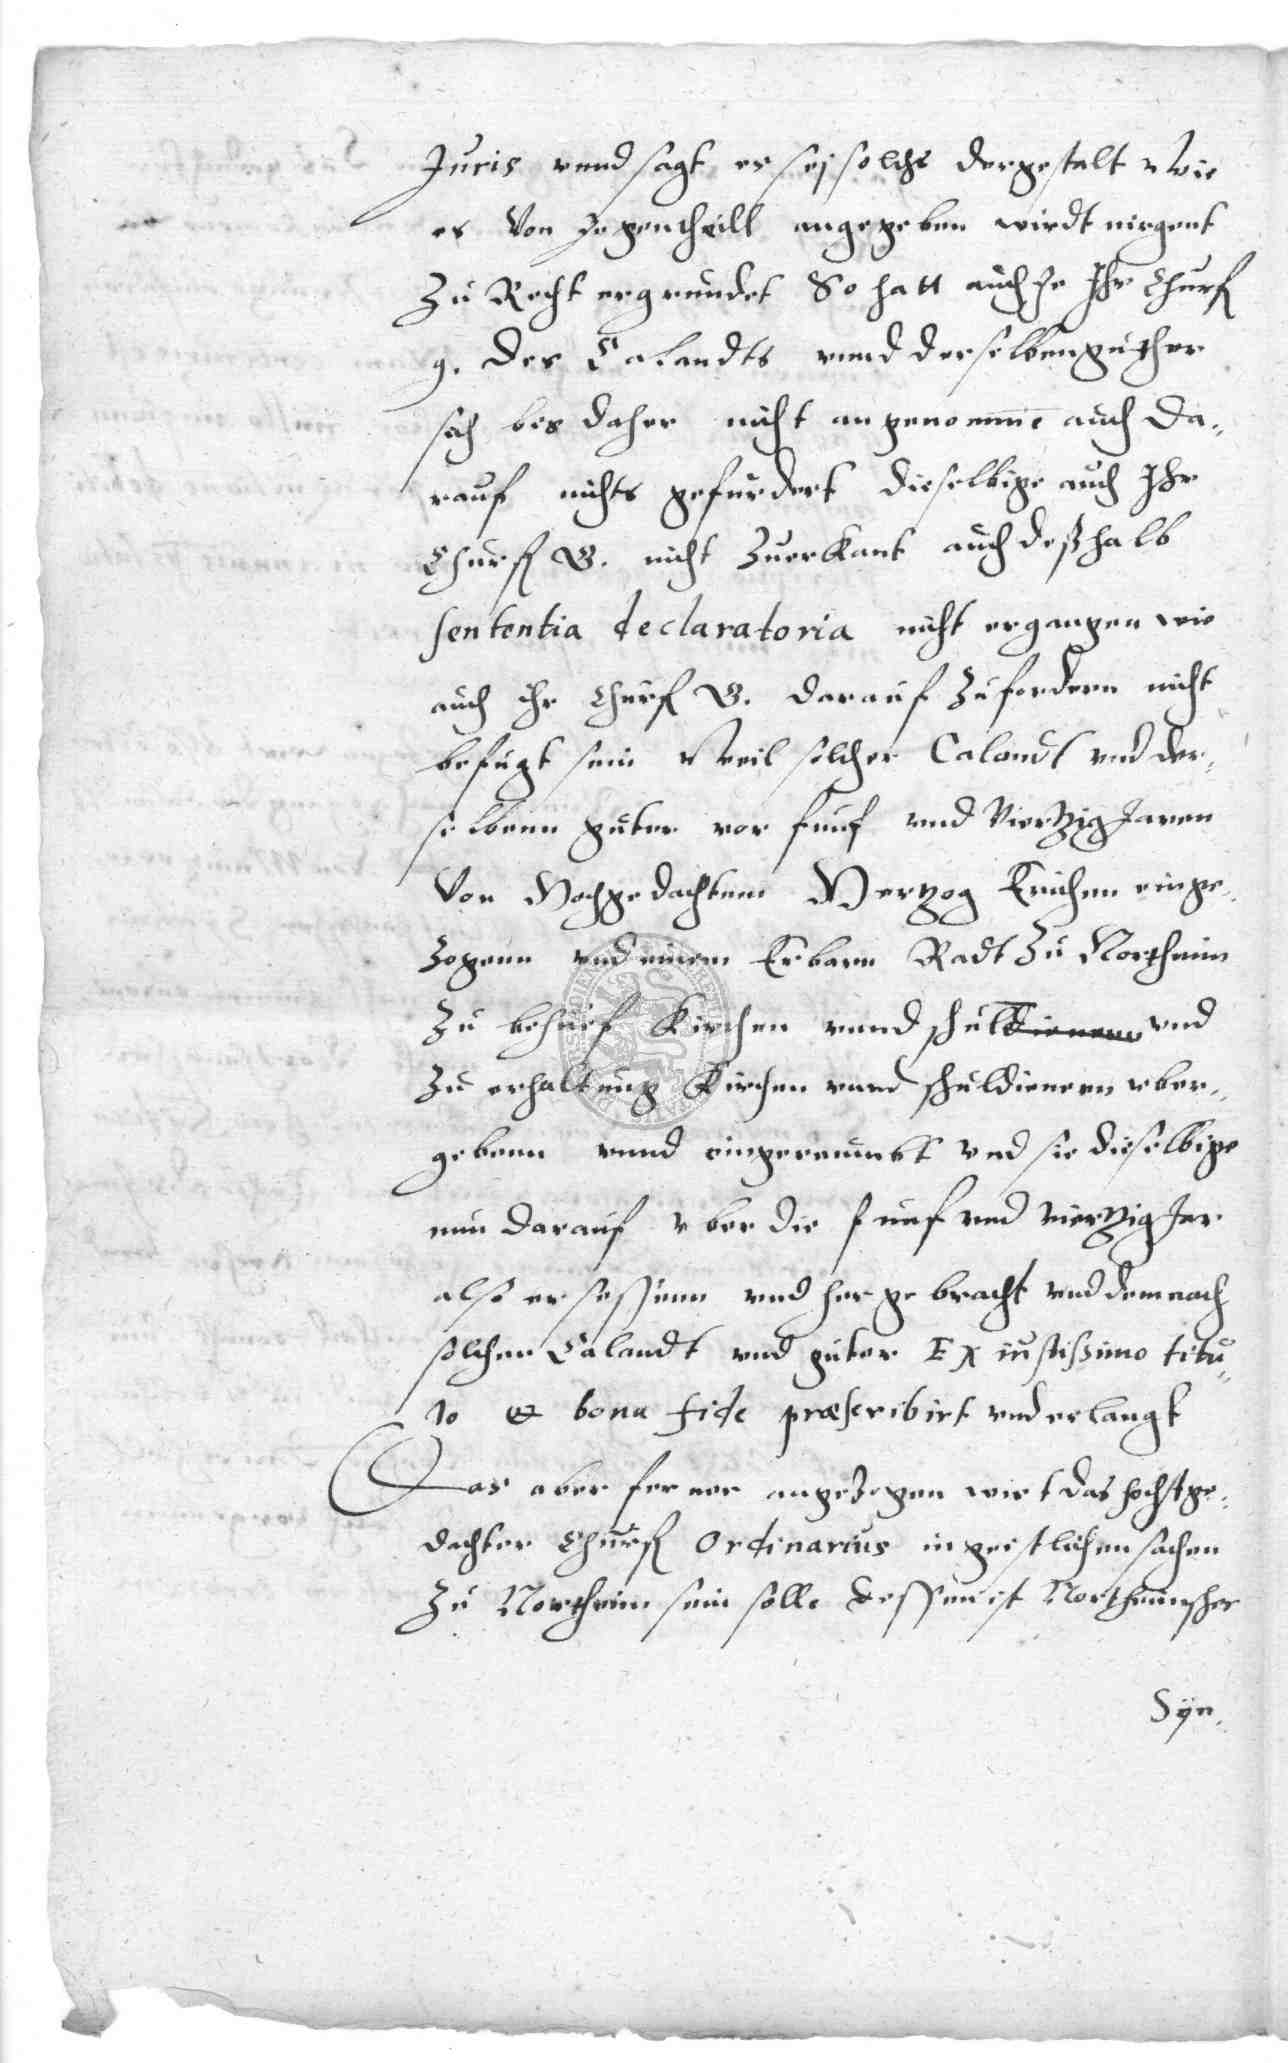 Juris vnnd sagt es sej solchs dergestalt Wie
es Von gegentheill angegeben wirdt nirgent
Zu Recht ergrundet So hatt auch Je Ihr Churf
g. des Calandts vnnd derselben guther
sich bis daher nicht angenomme auch da„
rauf nichts gefurdert dieselbige auch Ihr
Churf G. nicht Zuerkant auch deßhalb
sententia declaratoria nicht ergangen wie
auch ihr Churf G. darauf Zufordern nicht
befugt sein Weil solcher Calandt vnd der„
selbenn guter vor funf vnd Viertzig Jaren
Von Hochgedachtem Hertzog Erichen einge„
Zogenn vnd einem Erbarn Radt Zu Northeim
Zu behuef Kirchen vnnd schul vnd
Zu erhaltung Kirchen vnnd schuldienern vber„
gebenn vnnd eingereumbt vnd sie dieselbige
nun darauf vber die funf vnd viertzig Jar
also ersessenn vnd hergebracht vnd demnach
solchen Calandt vnd guter Ex iustissimo titu„
lo et bona fide præscribirt vnd erlangt
Das aber ferner angezogen wirt das hochstge„
dachter Churf Ordinarius in geistlichen sachen
Zu Northeim sein solle dessen ist Northeimscher
Syn„